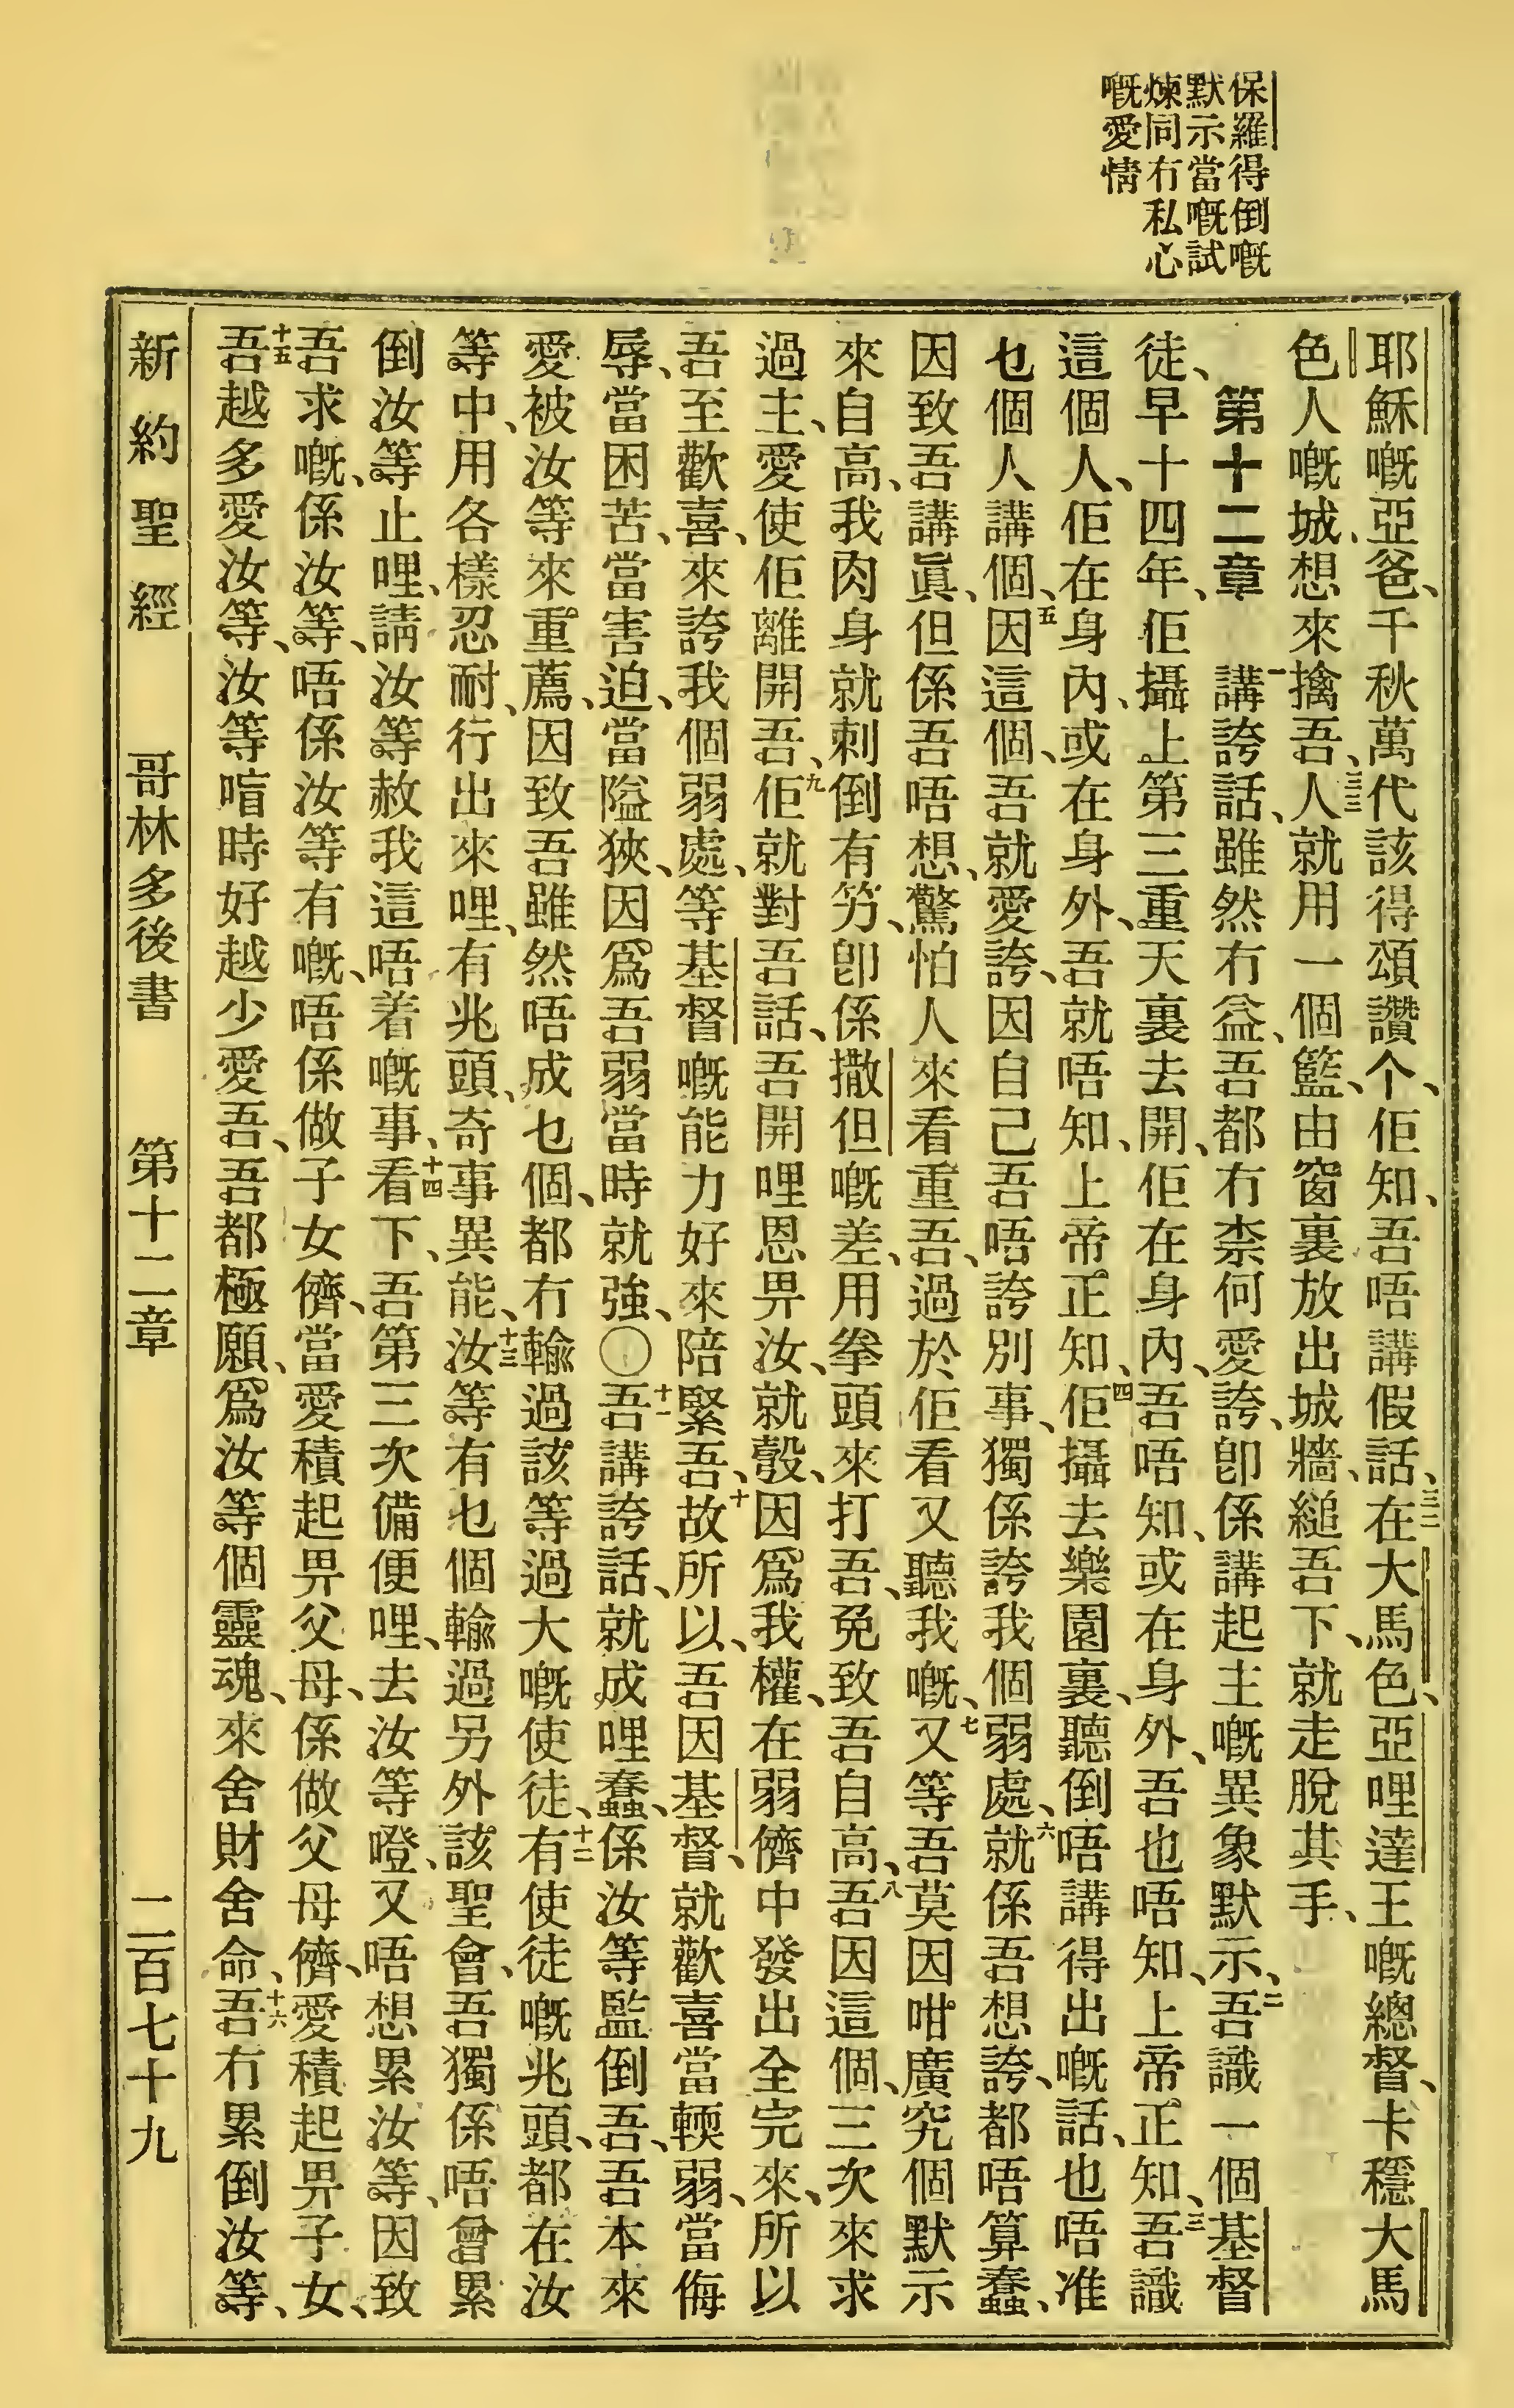 保羅得倒嘅
默示當嘅試
煉同冇私心
嘅愛情
耶穌嘅亞爸、千秋萬代該得頌讚个、佢知、吾唔講假話、三二在大馬色、亞哩達王嘅總督、卡穩大馬
色人嘅城、想來擒吾、三三人就用一個籃、由窗裏放出城牆、縋吾下、就走脫其手、
第十二章 一講誇話、雖然冇益、吾都冇柰何愛誇、卽係講起主嘅異象默示、二吾識一個基督
徒、早十四年、佢攝上第三重天裏去開、佢在身內、吾唔知、或在身外、吾也唔知、上帝正知、三吾識
這個人、佢在身內、或在身外、吾就唔知、上帝正知、四佢攝去樂園裏、聽倒唔講得出嘅話、也唔准
乜個人講個、五因這個、吾就愛誇、因自己吾唔誇別事、獨係誇我個弱處、六就係吾想誇、都唔算蠢、
因致吾講眞、但係吾唔想、驚怕人來看重吾、過於佢看又聽我嘅、七又等吾莫因咁廣究個默示
來自高、我肉身就刺倒有竻、卽係撒但嘅差、用拳頭來打吾、免致吾自高、八吾因這個、三次來求
過主、愛使佢離開吾、九佢就對吾話、吾開哩恩畀汝、就彀、因爲我權、在弱儕中發出全完來、所以
吾至歡喜、來誇我個弱處、等基督嘅能力好來陪緊吾、十故所以、吾因基督、就歡喜當輭弱、當侮
辱、當困苦、當害迫、當隘狹、因爲吾弱當時就強、〇十一吾講誇話、就成哩蠢、係汝等監倒吾、吾本來
愛被汝等來重薦、因致吾雖然唔成乜個、都冇輸過該等過大嘅使徒、十二有使徒嘅兆頭、都在汝
等中、用各樣忍耐、行出來哩、有兆頭、奇事異能、十三汝等有乜個輸過另外該聖會、吾獨係唔曾累
倒汝等止哩、請汝等赦我這唔着嘅事、十四看下、吾第三次備便哩、去汝等嶝、又唔想累汝等、因致
吾求嘅、係汝等、唔係汝等有嘅、唔係做子女儕、當愛積起畀父母、係做父母儕、愛積起畀子女、
十五吾越多愛汝等、汝等喧時好越少愛吾、吾都極願、爲汝等個靈魂、來舍財舍命、十六吾冇累倒汝等、
新約聖經 哥林多後書 第十二章 二百七十九